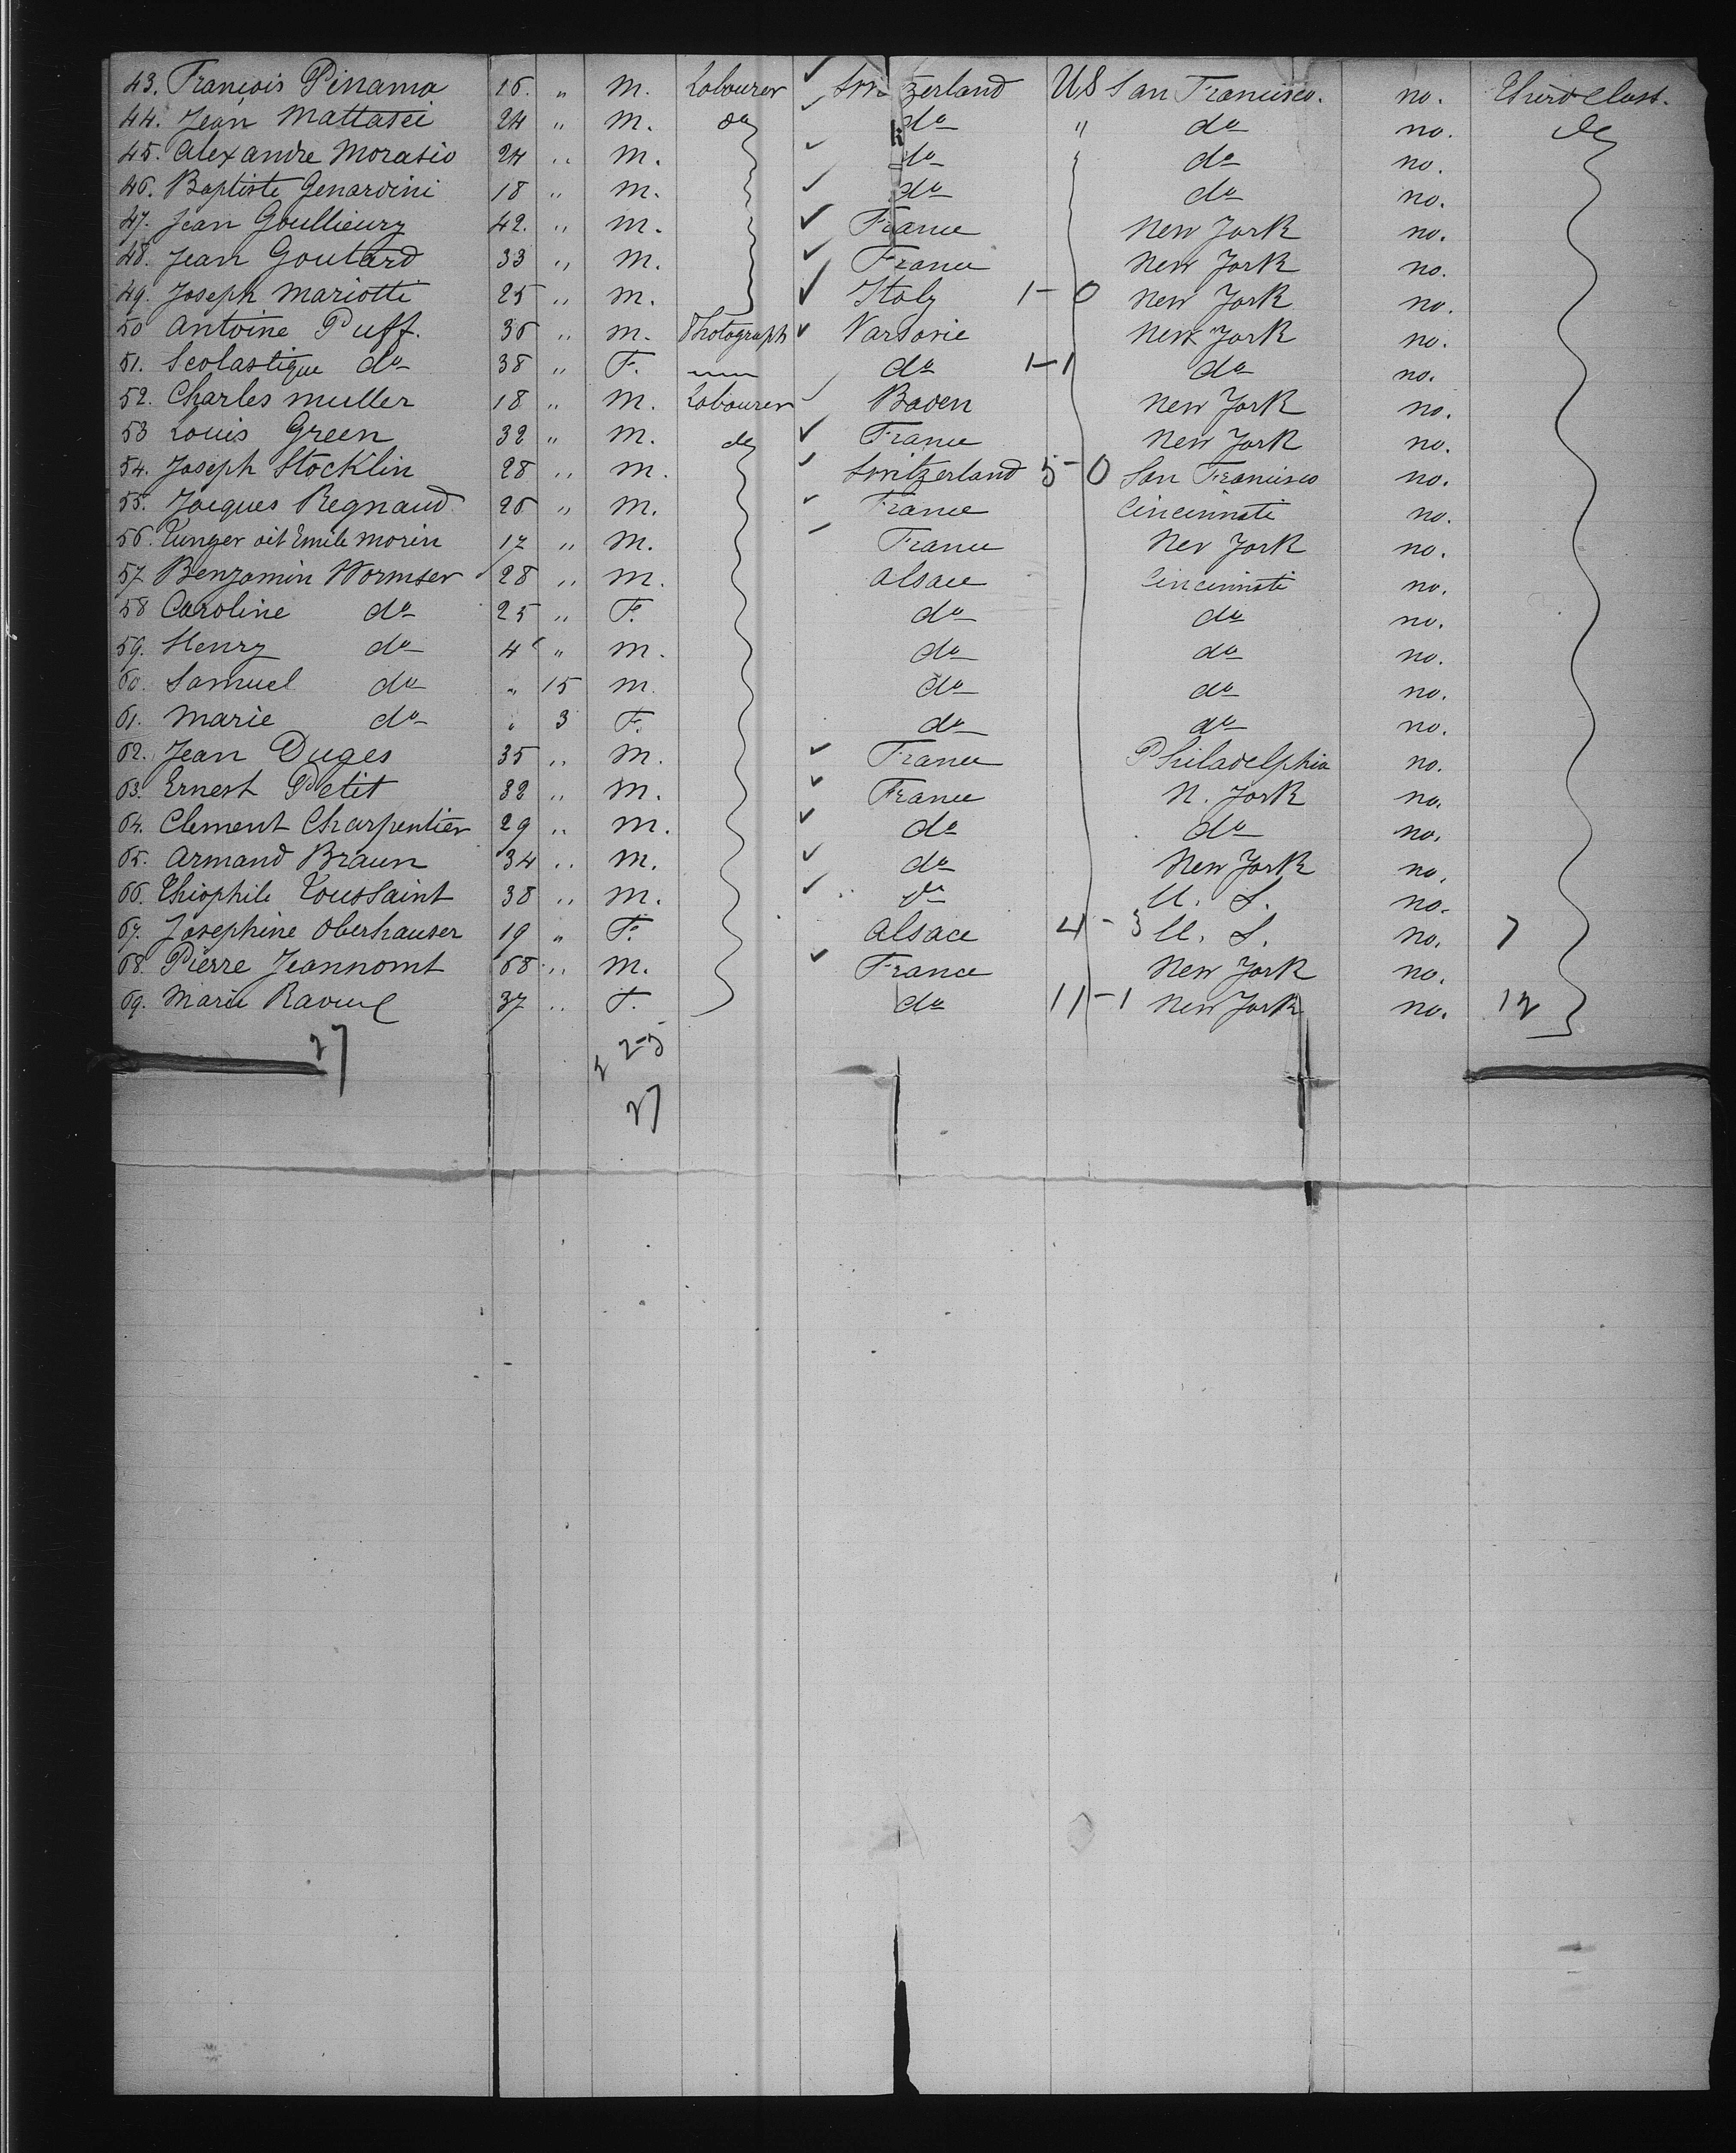 43. François Pinama 16. " M. Labourer ✓ Switzerland US San Francisco. no. Third Class.
44. Jean Mattasei 24 " M. do ✓ do " do no. do
45. Alexandre Morasio 24 " M. ✓ do do no.
46. Baptiste Genardini 18 " M. ✓ do do no.
47. Jean Goullieury 42. " M. ✓ France New York no.
48. Jean Goutard 33 " M. ✓ France New York no.
49. Joseph Mariotti 25 " M. ✓ Italy 1-0 New York no.
50 Antoine Puff. 36 " M. Photograph ✓ Varsovie New York no.
51. Scolastique do 38 " F. do 1-1 do no.
52. Charles Muller 18 " M. Labourer ✓ Baden New York no.
53 Louis Green 32 " M. do ✓ France New York no.
54. Joseph Stocklin 28 " M. ✓ Switzerland 5-0 San Francisco no.
55. Jacques Regnaud 26 " M. ✓ France Cincinnati no.
56. Tunger dit Emile Morin 17 " M. France New York no.
57 Benjamin Wormser 28 " M. Alsace Cincinnati no.
58 Caroline do 25 " F. do do no.
59. Henry do 4 " M. do do no.
60. Samuel do " 15 M. do do no.
61. Marie do " 3 F. do do no.
62. Jean Duges 35 " M. ✓ France Philadelphia no.
63. Ernest Petit 32 " M. ✓ France N. York no.
64. Clement Charpentier 29 " M. ✓ do do no.
65. Armand Braun 34 " M. ✓ do New York no.
66. Thiophile Toussaint 38 " M. ✓ do U. S. no.
67. Josephine Oberhauser 19 " F. Alsace 4-3 U. S. no. 7
68. Pierre Jeannomt 68 " M. ✓ France New York no.
69. Marie 37 " F. do 11-1 New York no. 12
27 2-5
27